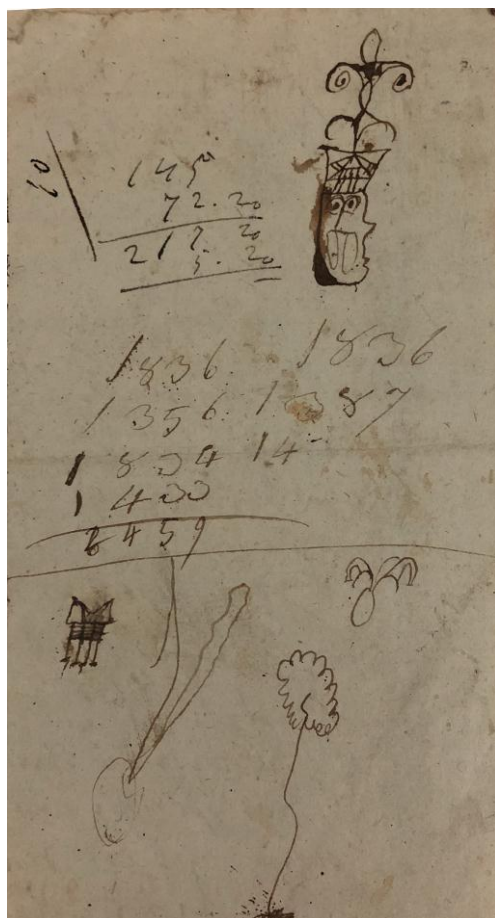 145
72.20
217.20
5.20
1836 1836
1356 1387
1834 14
1433
6459